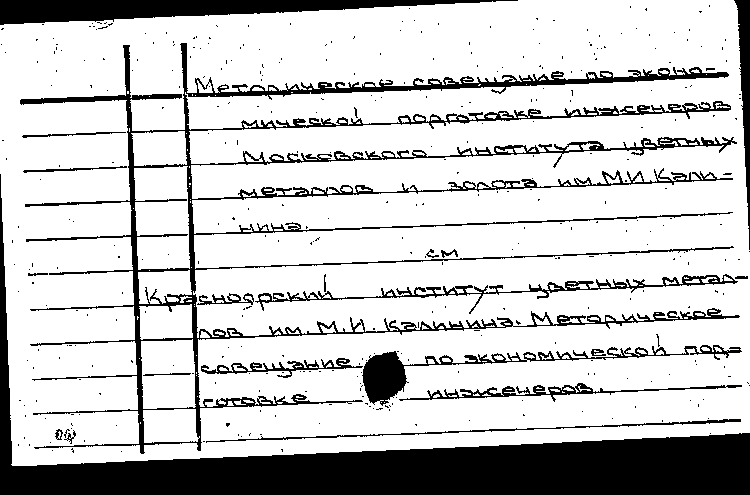 Методическое совещание по эконо-
мической подготовке инженеров
Московского института цветных
металлов и золота им. М.И. Кали-
нина.
см
Красноярский институт цветных метал-
лов им. М.И. Калинина. Методическое
совещание по экономической под-
готовке инженеров.